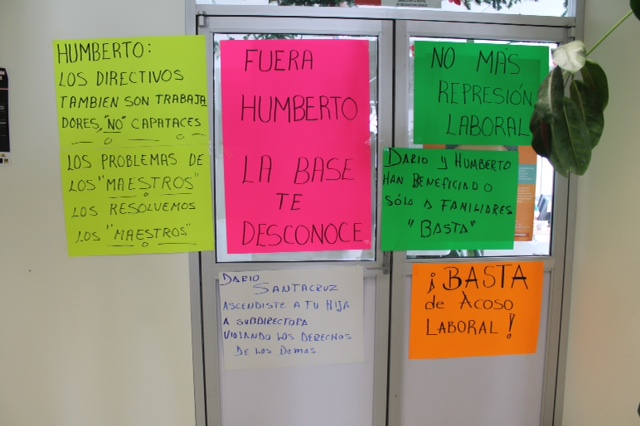 HUMBERTO:
LOS DIRECTIVOS
TAMBIEN SON TRABAJA
DORES, "NO" CAPATACES
LOS PROBLEMAS DE
LOS "MAESTROS"
LOS RESOLVEMOS
LOS "MAESTROS"
FUERA
HUMBERTO
LA BASE
TE
DESCONOCE
NO MAS
REPRESIÓN
LABORAL
DARIO Y HUMBERTO
HAN BENEFICIADO
SÓLO A FAMILIARES
"BASTA"
DARIO
SANTACRUZ
ASCENDISTE A TU HIJA
A SUBDIRECTORA
VIOLANDO LOS DERECHOS
DE LOS DEMAS
¡BASTA
de ACOSO
LABORAL!